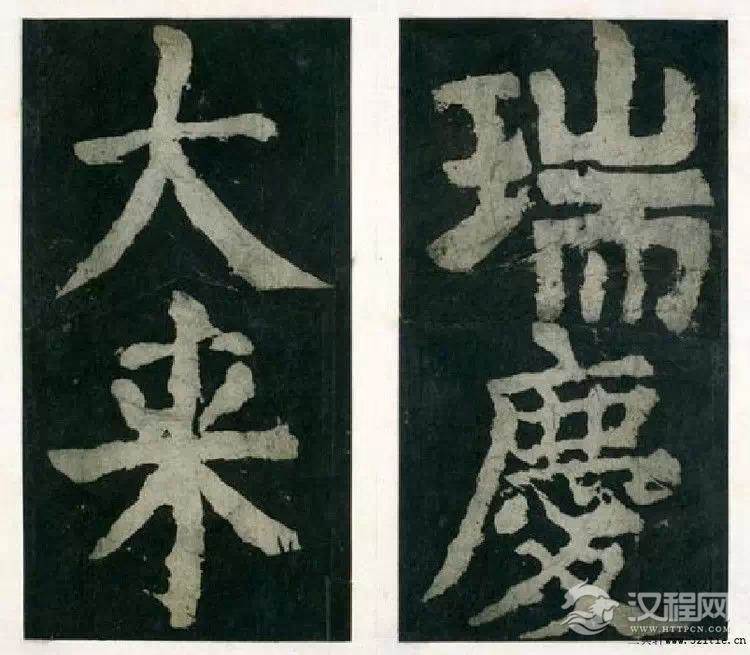 瑞慶
大来
汉程网
WWW.HTTPCN.COM